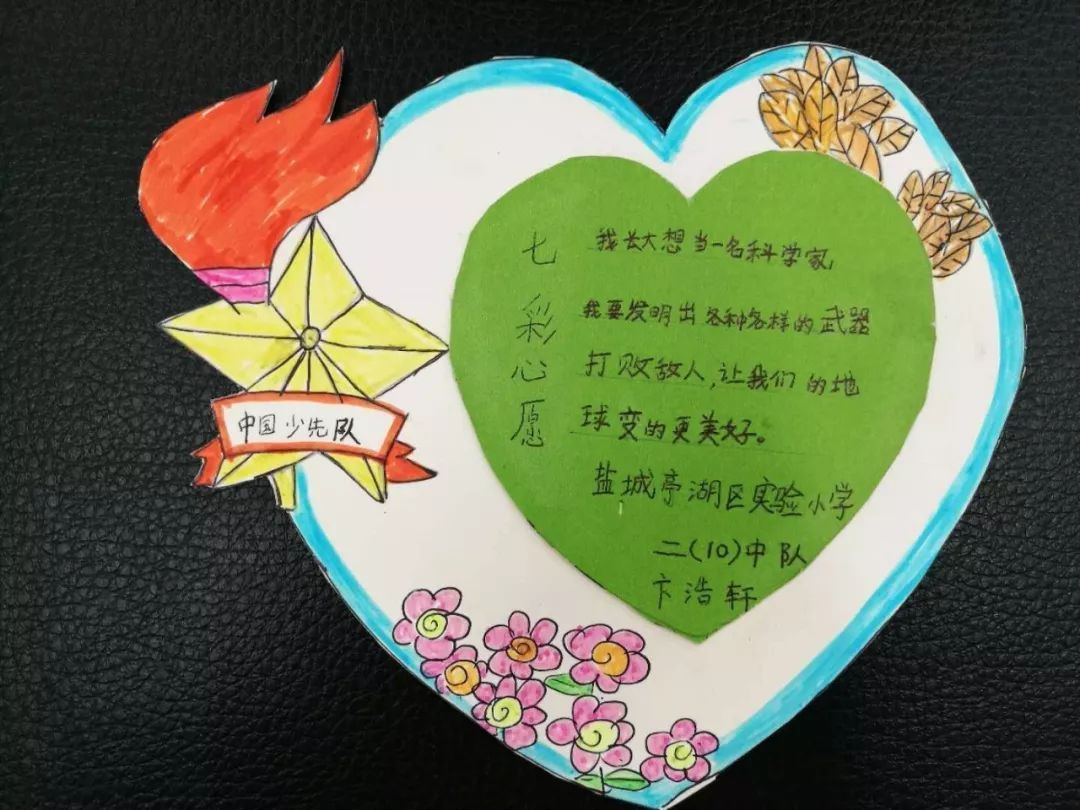 中国少先队
七彩心愿
我长大想当一名科学家,
我要发明出各种各样的武器
打败敌人,让我们的地
球变的更美好。
盐城亭湖区实验小学
二(10)中队
卞浩轩